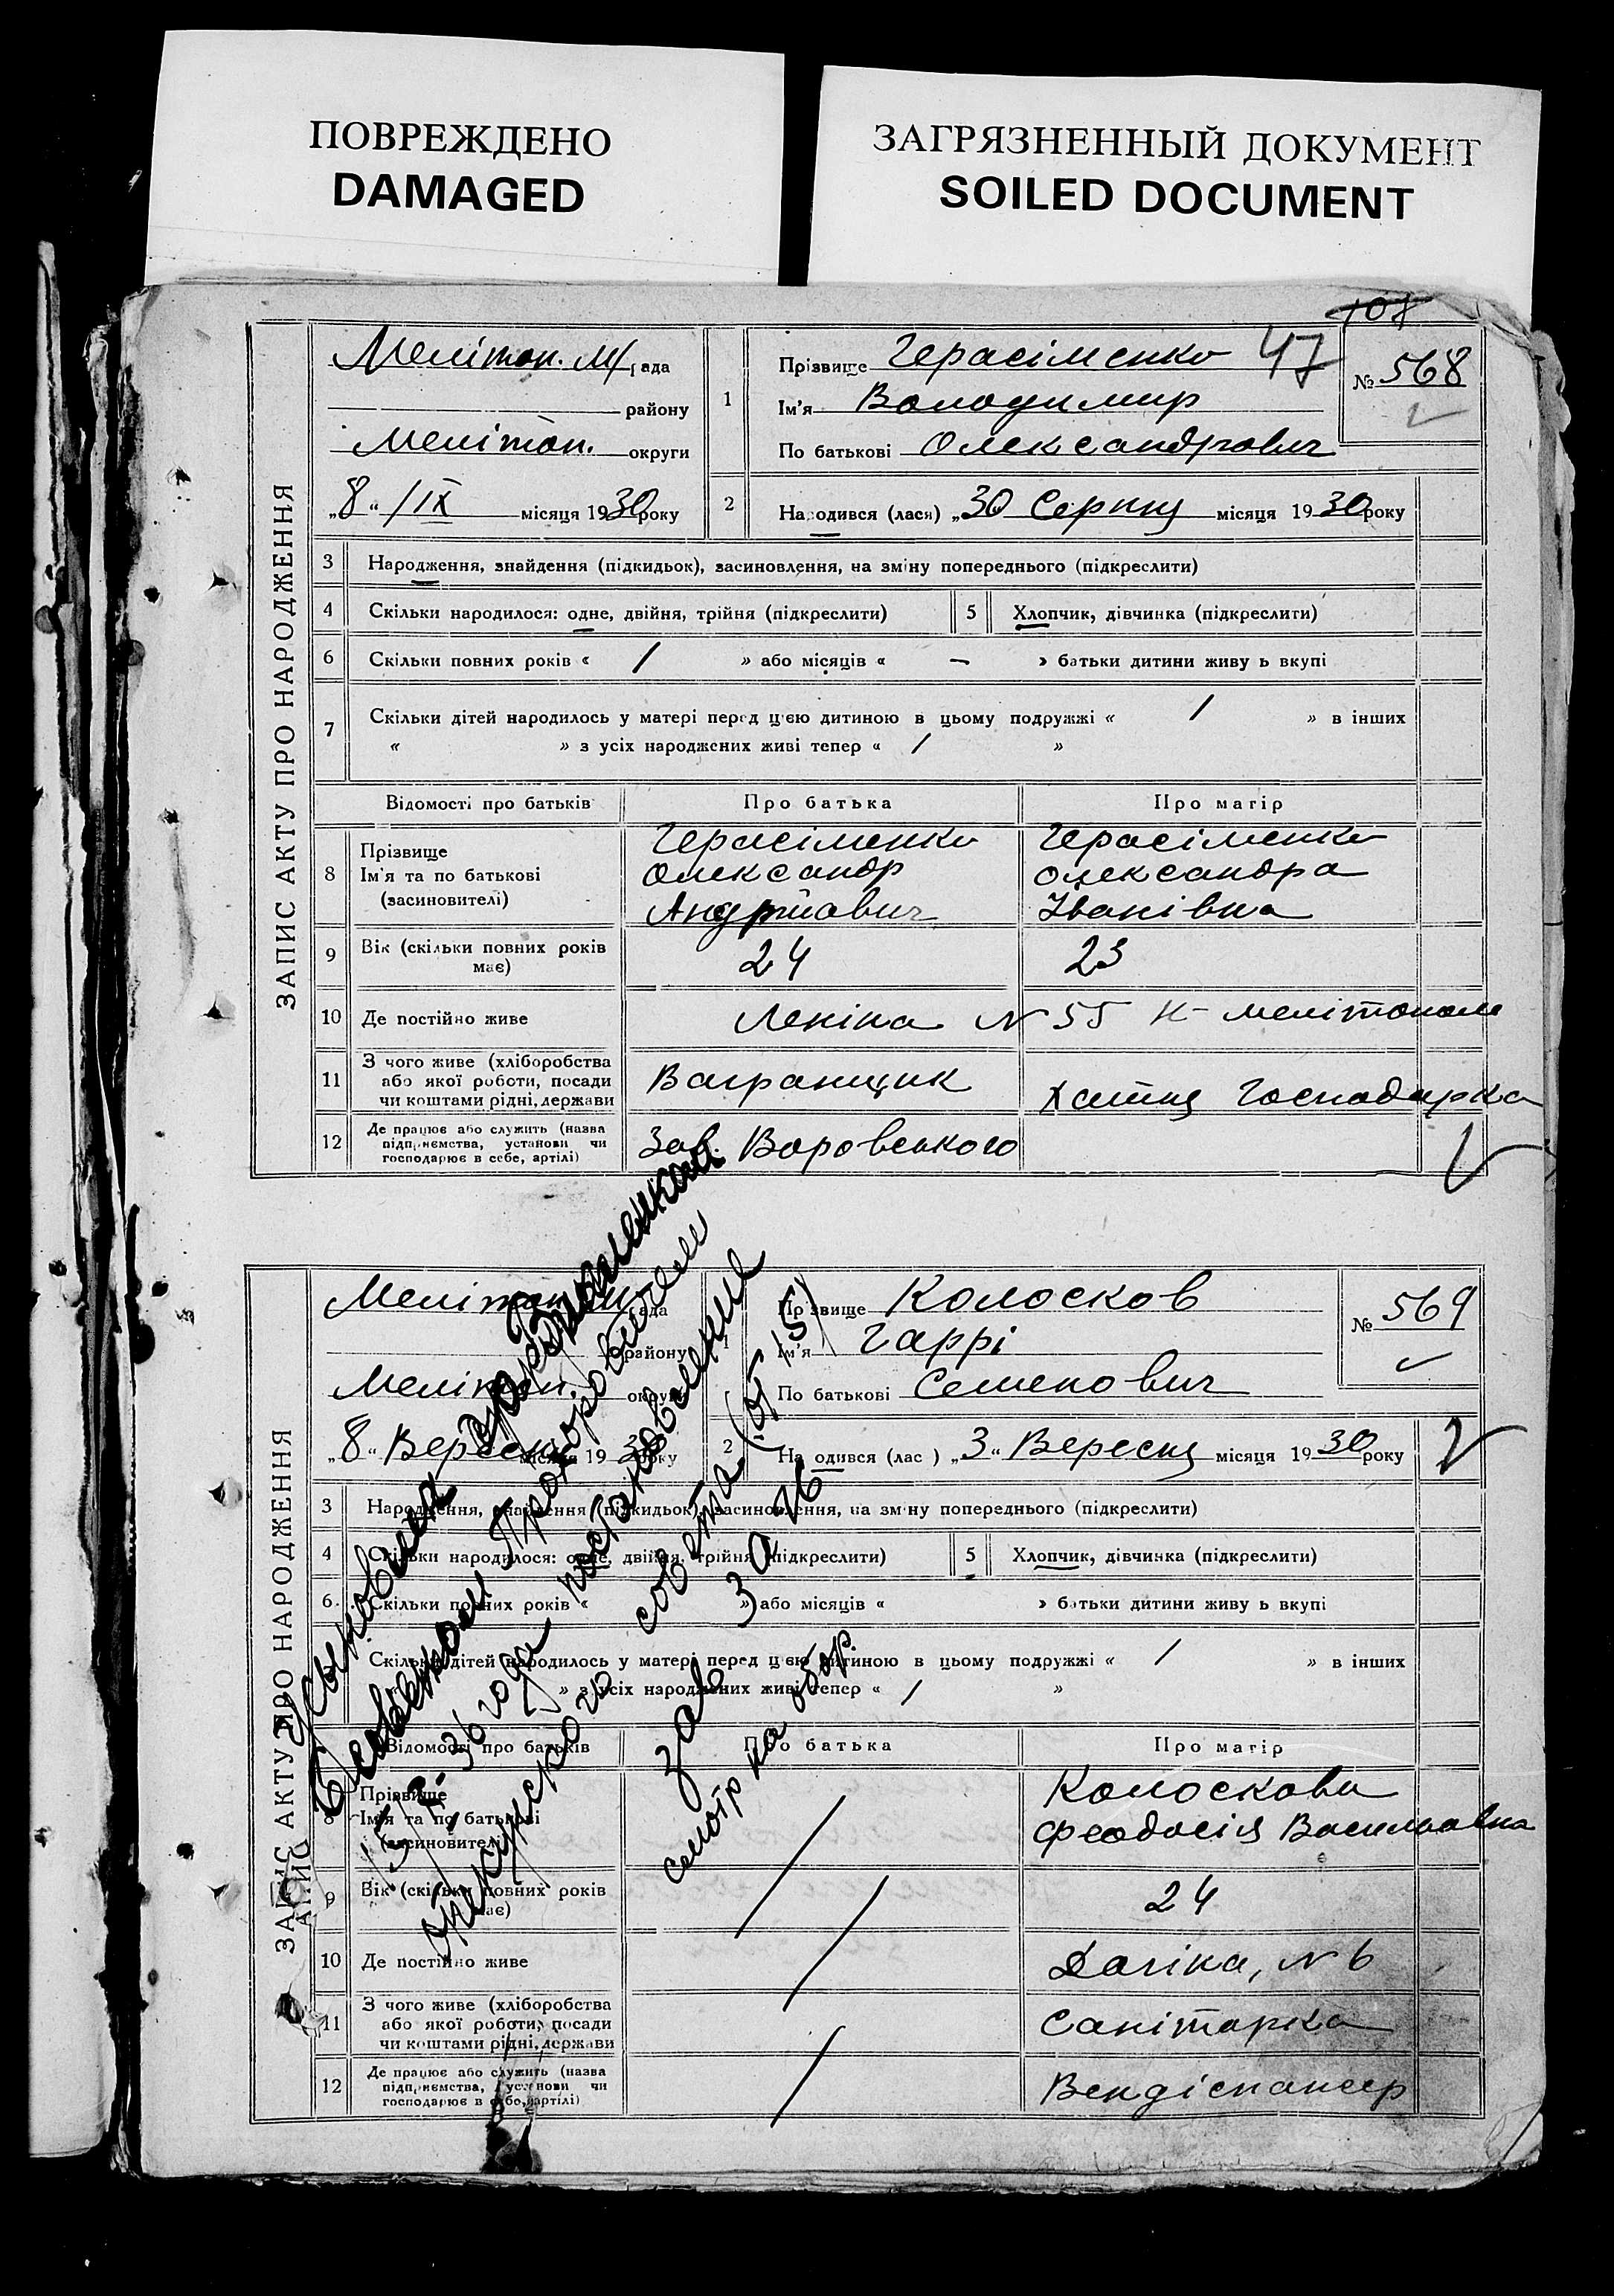 ПОВРЕЖДЕНО
DAMAGED
ЗАГРЯЗНЕННЫЙ ДОКУМЕНТ
SOILED DOCUMENT
107
47
ЗАПИС АКТУ ПРО НАРОДЖЕННЯ
Мелітоп. М/рада
району
Мелітоп. округи
„8“ /IX місяця 1930 року
1
Прізвище Герасіменко
Ім'я Володимир
По батькові Олександрович
№ 568
2
Народився (лася) „30 Серпня місяця 1930 року
3 Народження, знайдення (підкидьок), засиновлення, на зміну попереднього (підкреслити)
4 Скільки народилося: одне, двійня, трійня (підкреслити) 5 Хлопчик, дівчинка (підкреслити)
6 Скільки повних років « / » або місяців « – » батьки дитини живу ь вкупі
7 Скільки дітей народилось у матері перед цією дитиною в цьому подружжі « / » в інших
« » з усіх народжених живі тепер « / »
Відомості про батьків Про батька Про матір
8 Прізвище Ім'я та по батькові (засиновителі)
Герасіменко Олександр Андрійович
Герасіменко Олександра Іванівна
9 Вік (скільки повних років має) 24 23
10 Де постійно живе Леніна N 55 Н-Мелітополь
11 З чого живе (хліборобства або якої роботи, посади чи коштами рідні, держави
Вагранщик Хатня Господарка
12 Де працює або служить (назва підприємства, установи чи господарює в себе, артілі)
Зав. Воровського
ЗАПИС АКТУ ПРО НАРОДЖЕННЯ
Меліто рада
району
Мелітоп. округи
„8“ Вересня місяця 1930 року
1
Прізвище Колосков
Ім'я Гаррі
По батькові Семенович
№ 569
2
На одився (лас ) „3“ Вересня місяця 1930 року
3 Народження, знайдення (підкидьок), засиновлення, на зміну попереднього (підкреслити)
4 Скільки народилося: одне, двійня, трійня (підкреслити) 5 Хлопчик, дівчинка (підкреслити)
6 Скільки повних років « » або місяців « » батьки дитини живу ь вкупі
Скільки дітей народилось у матері перед цією дитиною в цьому подружжі « / » в інших
» з усіх народжених живі тепер « / »
Відомості про батьків Про батька Про матір
8 Прізвище Ім'я та по батькові (засиновителі)
Колоскова Феодосія Васильовна
9 Вік (скільки повних років має) 24
10 Де постійно живе N 6
11 З чого живе (хліборобства або якої роботи, посади чи коштами рідні, держави
Санітарка
12 Де працює або служить (назва підприємства, установи чи господарює в себе, артілі)
Вендіспансер
Усыновлен
Прохоровичем
36 года постановление
опекунского совета (от 15)
зав Загс
смотр на обор.